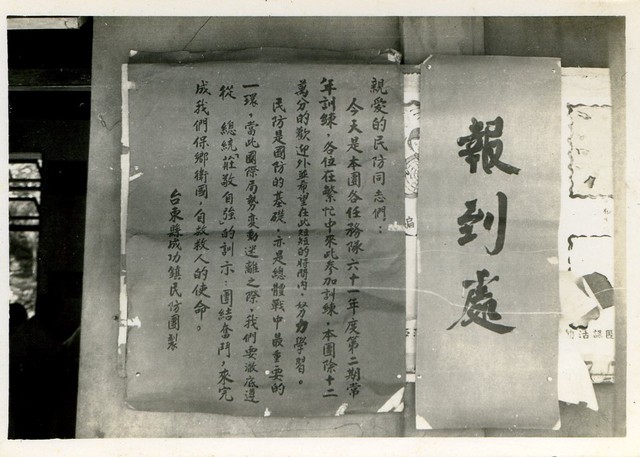 報到處
親愛的民防同志們：
今天是本團各任務隊六十一年度第二期常
年訓練，各位在繁忙中來此參加訓練，本團除十二
萬分的歡迎外並希望在此短短的時間內，努力學習。
民防是國防的基礎，亦是總體戰中最重要的
一環，當此國際局勢變動迷離之際，我們要澈底遵
從　總統「莊敬自強」的訓示：團結奮鬥，來完
成我們保鄉衛國，自救救人的使命。
台東縣成功鎮民防團製